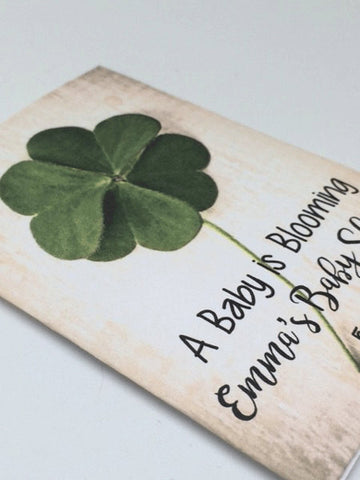 A Baby is Blooming
Emma's Baby